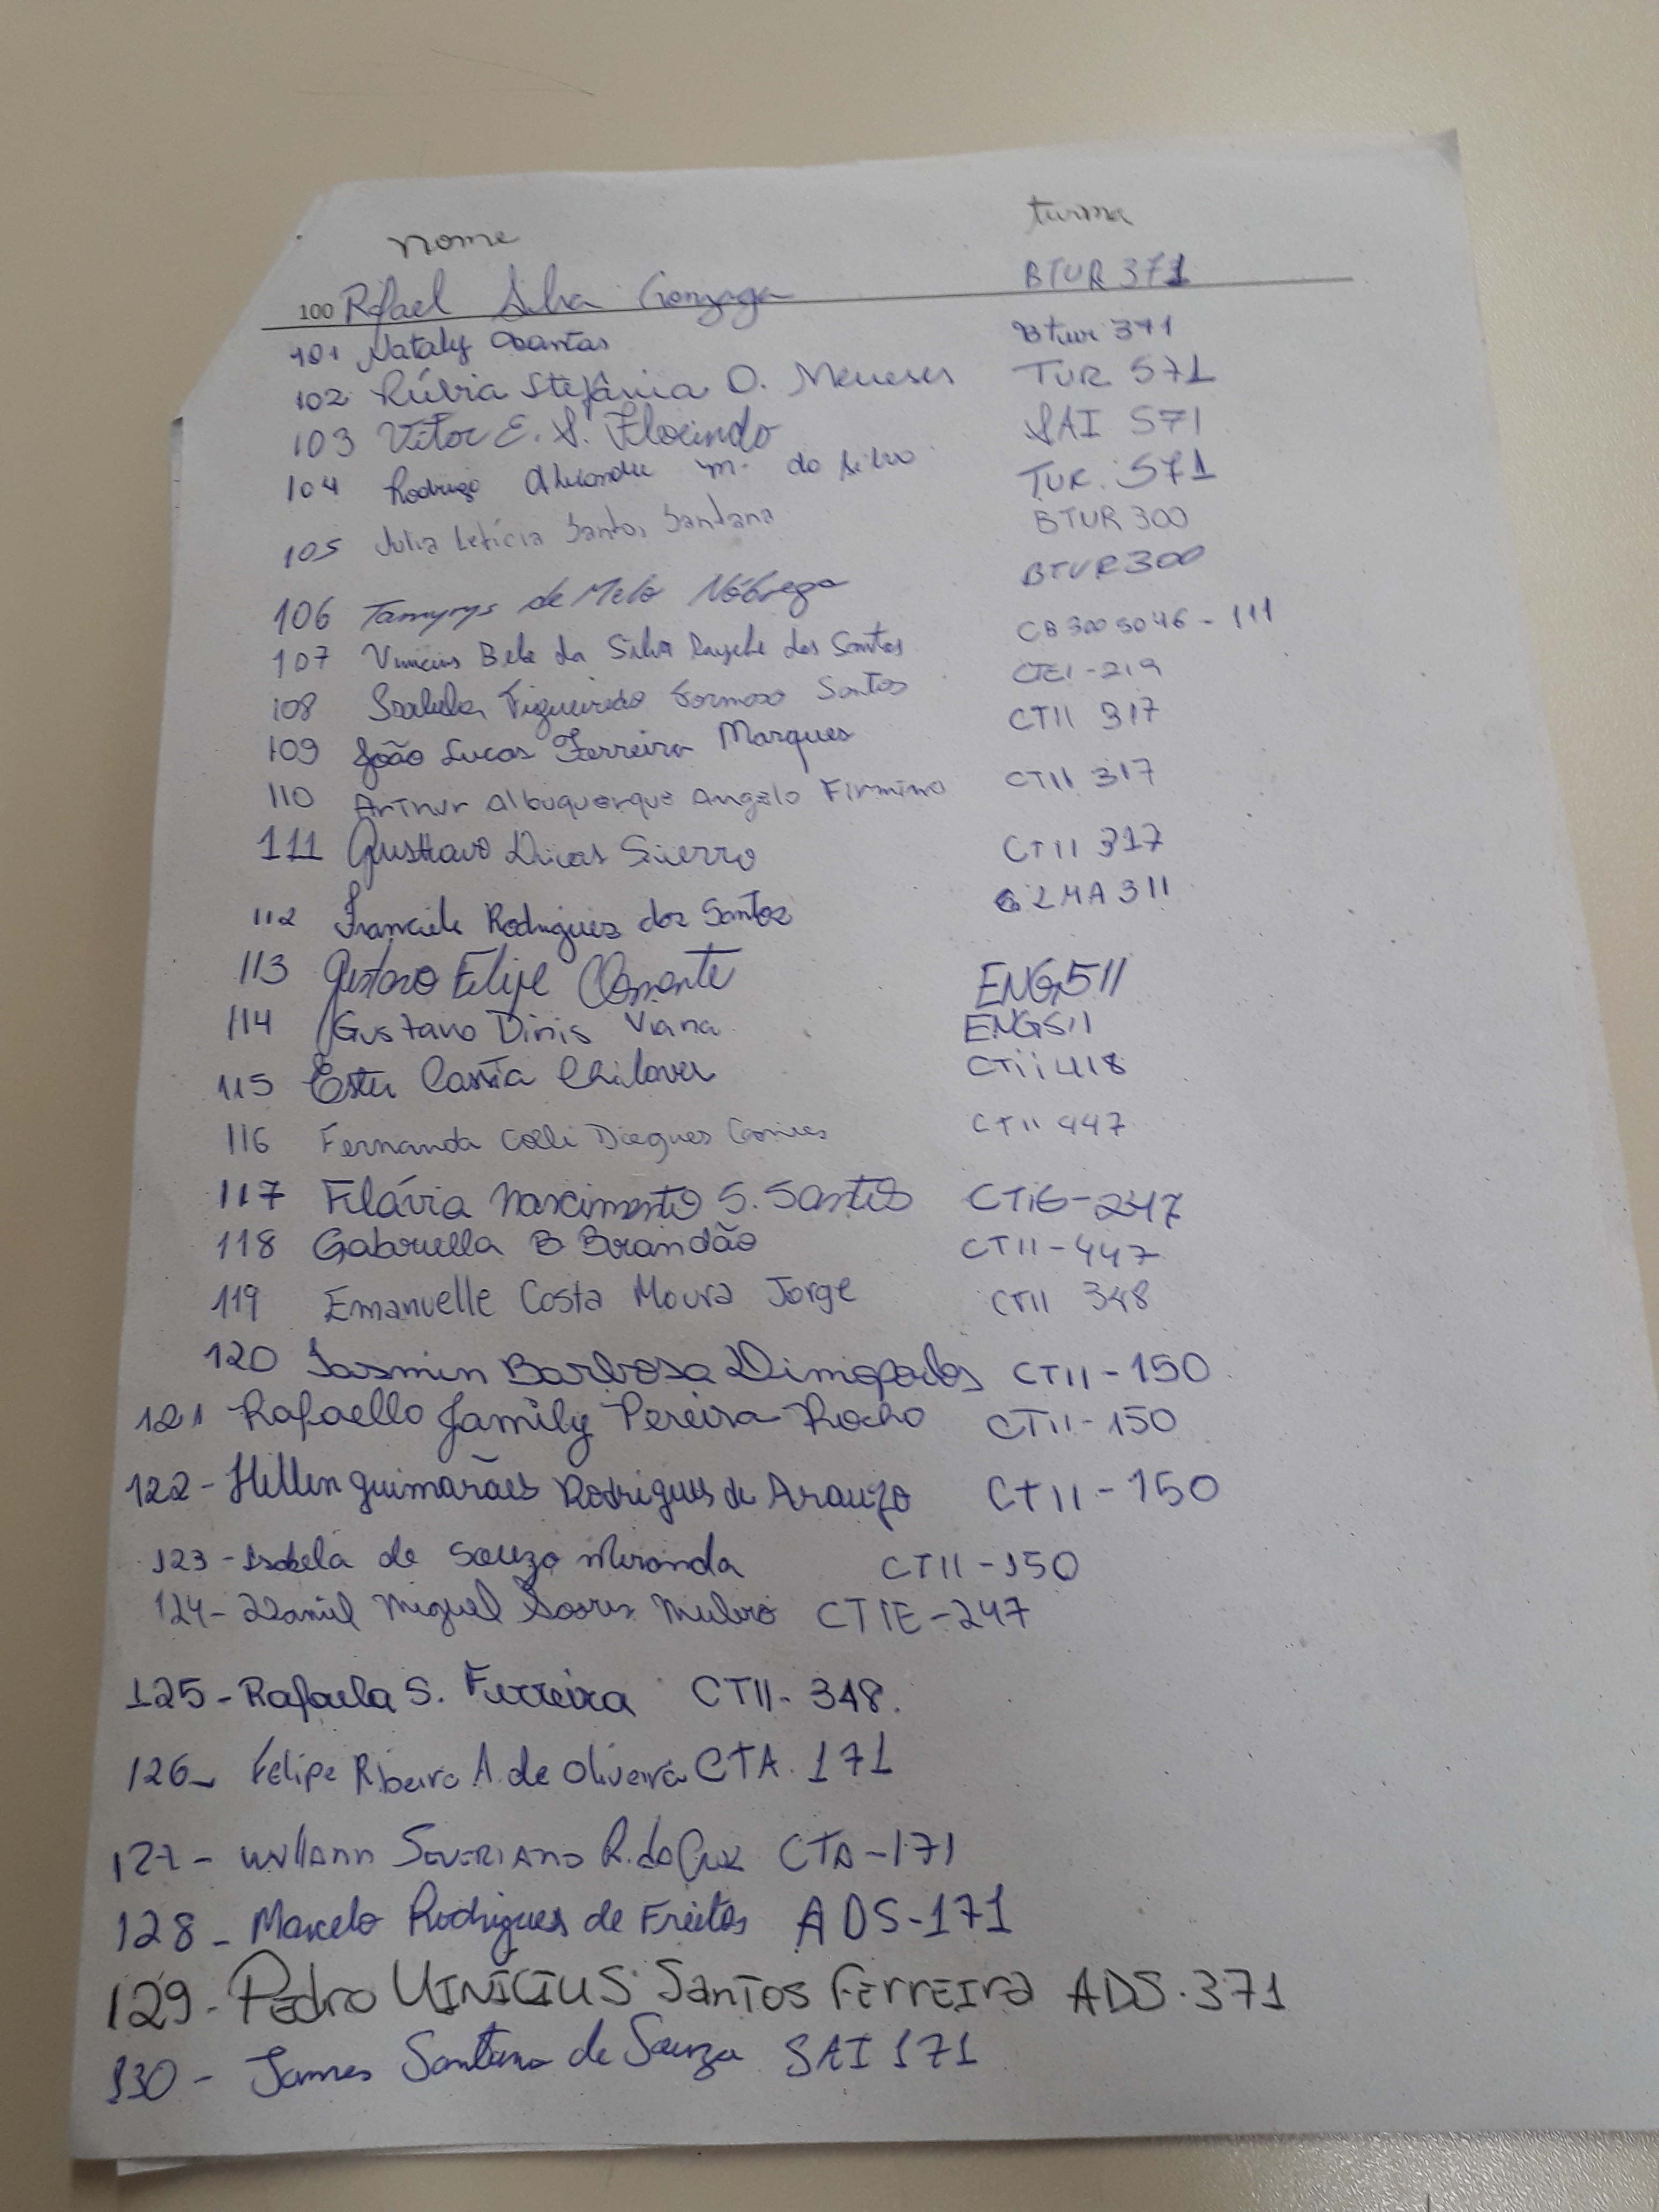 nome turma
100 Rafael Silva Gonzaga BTUR 371
101 Nataly Dantas Btur 371
102 Rúbia Stefânia O. Meneses TUR 571
103 Vitor E. S. Florindo SAI 571
104 Rodrigo Alexandre M. da Silva TUR. 571
105 Julia Letícia Santos Santana BTUR 300
106 Tamyrys de Melo Nóbrega BTUR 300
107 Vinicius Bele da Silva dos Santos CB3005046-111
108 Isabela Figueiredo Formoso Santos CTEI-219
109 João Lucas Ferreira Marques CTII 317
110 Arthur Albuquerque Angelo Firmino CTII 317
111 Gusttavo Dicas Sierro CTII 317
112 Franciele Rodrigues dos Santos LMA 311
113 Gustavo Felipe Clemente ENG511
114 Gustavo Dinis Viana ENG511
115 Ester Cassia CTii 418
116 Fernanda Colli Diegues Gomes CTII 447
117 Flávia Nascimento S. Santos CTiE-247
118 Gabriella B Brandão CTII-447
119 Emanuelle Costa Moura Jorge CTII 348
120 Iasmin Barbosa Dimopoulos CTII-150
121 Rafaello Jamily Pereira Rocha CTII-150
122-Hellen Guimarães Rodrigues de Araujo CTII-150
123-Isabela de Souza Miranda CTII-150
124-Daniel Miguel Soares CTIE-247
125-Rafaela S. Ferreira CTII-348.
126- Felipe Ribeiro A. de Oliveira CTA. 171
127- Willann Severiano R. da Cruz CTA-171
128- Marcelo Rodrigues de Freitas ADS-171
129-Pedro Vinícius Santos Ferreira ADS.371
130- James Santana de Souza SAI 171